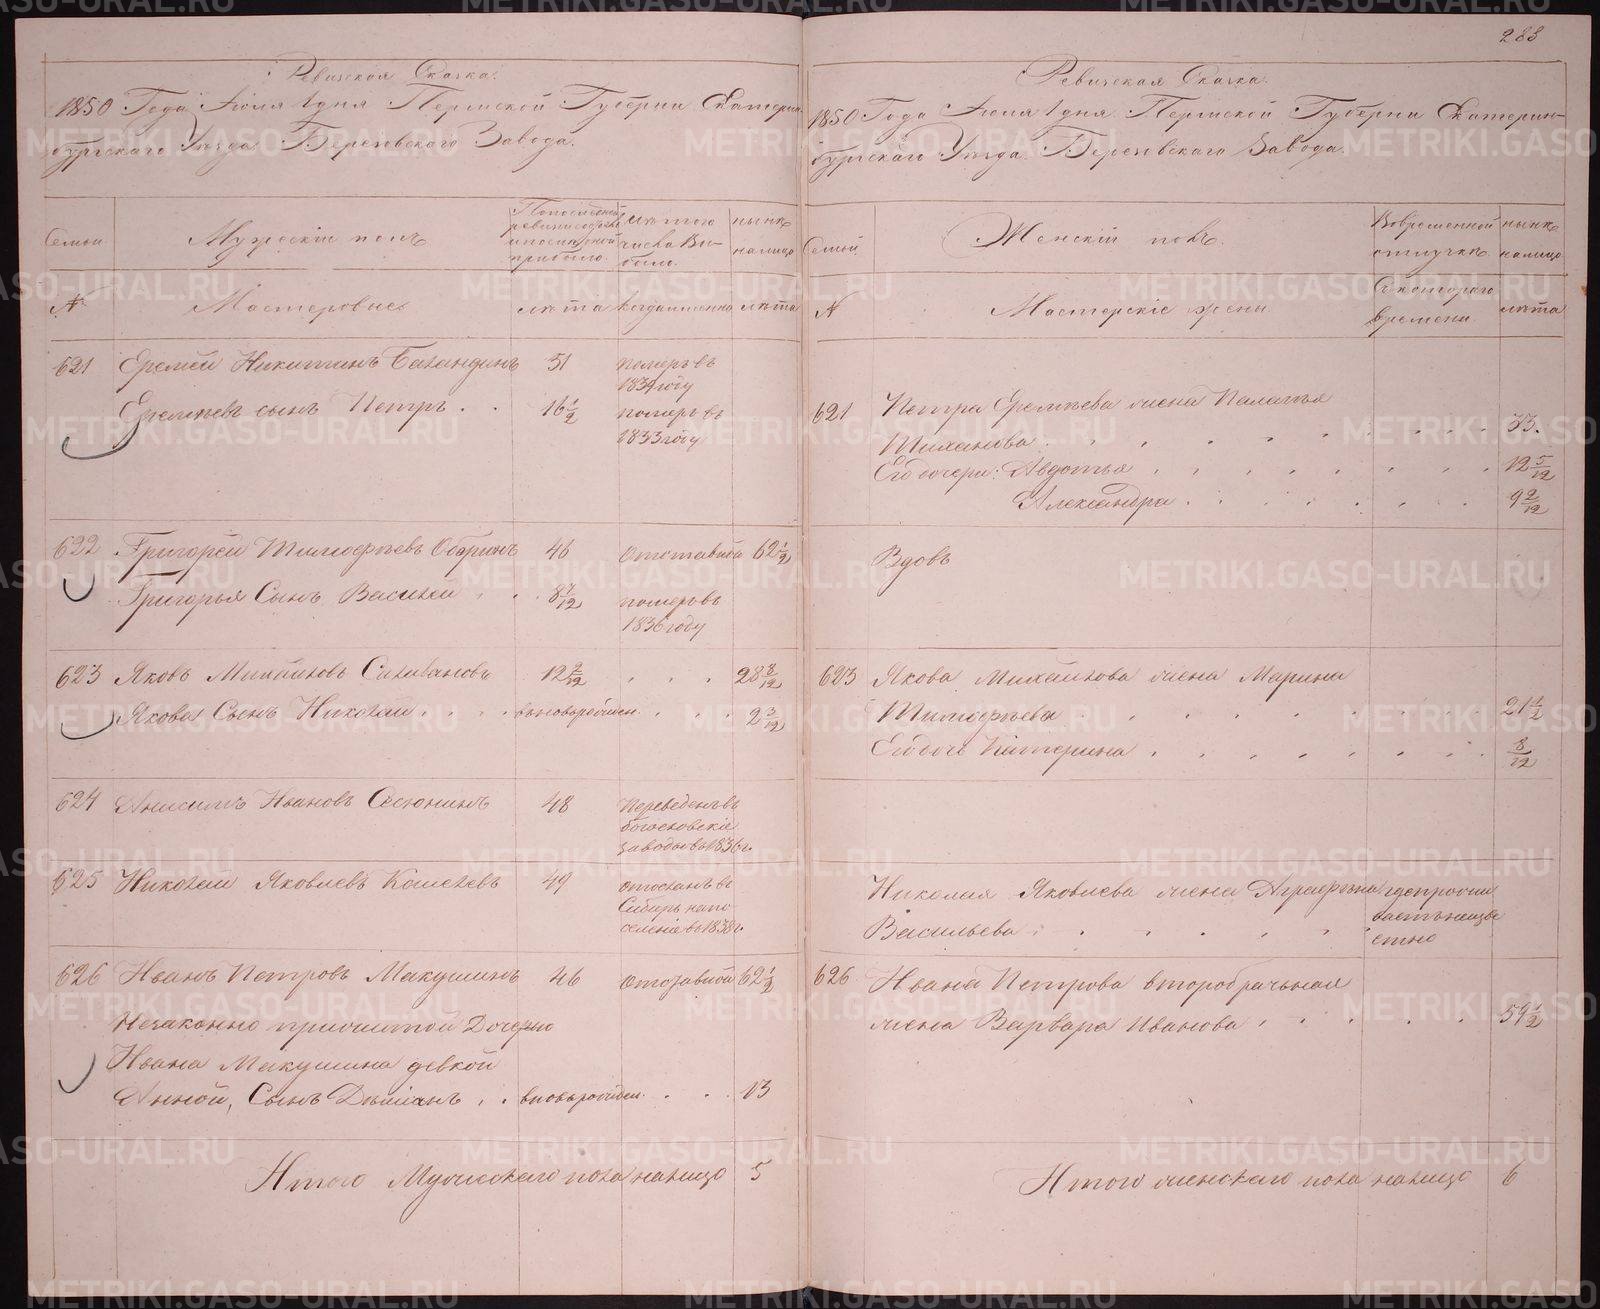 283
Ревизская Сказка.
1850 Года Июля 1 дня Пермской Губерніи Екатерин-
бургскаго Уѣзда Березовскаго Завода.
Семьи
Мужескій полъ
По последней
ревизіи
прибыло.
изъ того
числа вы-
было.
нынѣ
налицо
№
Мастеровые
лѣта
когда именно
лѣта
621 Еремей Никитинъ Баландинъ 51 померъ въ
1834 году
Еремѣевъ сынъ Петръ 16 1/2 померъ въ
1833 году
622 Григорей Тимофѣевъ 46 отставной 62 1/2
Григорья Сынъ Василей 8 7/12 померъ въ
1836 году
623 Яковъ Михайловъ Селивановъ 12 2/12 28 8/12
Якова Сынъ Николай вновьрожден. 2 3/12
624 Анисимъ Ивановъ Сесюнинъ 48 Переведенъ въ
богословскіе
заводы въ 1836 г.
625 Николай Яковлевъ Кошелевъ 49 отосланъ въ
Сибирь на по-
селеніе въ 1838 г.
626 Иванъ Петровъ Макушинъ 46 отставной 62 1/2
Незаконно прижитой Дочерью
Ивана Макушина девкой
Анной, Сынъ Демьянъ вновьрожден. 13
Итого Мужескаго пола налицо 5
Ревизская Сказка.
1850 Года Июля 1 дня Пермской Губерніи Екатерин-
бургскаго Уѣзда Березовскаго Завода.
Семьи
Женскій полъ.
Во временной
отлучкѣ
нынѣ
налицо
№
Мастерскіе жены
Съ котораго
времени
лѣта
621 Петра Еремѣева жена Палагья
Тиханова 33.
Его дочери: Авдотья 12 5/12
Александра 9 2/12
Вдовъ
623 Якова Михайлова жена Марина
Тимофѣева 21 1/2
Его дочь Катерина 8/12
Николая Яковлева жена Аграфѣна
Васильева
626 Ивана Петрова второбрачная
жена Варвара Иванова 59 1/2
Итого женскаго пола налицо 6
METRIKI.GASO-URAL.RU